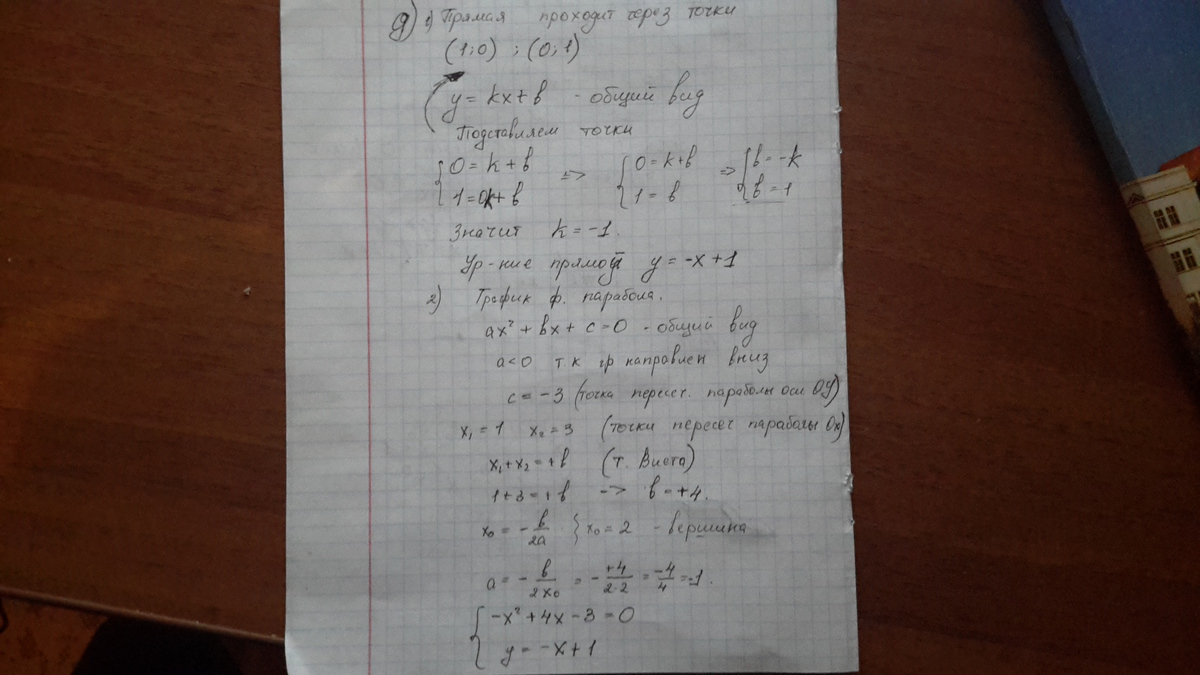 g) 1) Прямая проходит через точки
(1;0) ; (0;1)
y = kx + b - общий вид
Подставляем точки
{ 0 = k + b => { 0 = k + b => { b = -k
1 = 0k + b 1 = b b = 1
Значит k = -1.
Ур-ние прямой y = -x + 1
2) График ф. парабола.
ax² + bx + c = 0 - общий вид
a < 0 т.к гр направлен вниз
c = -3 (точка пересеч. параболы оси OY)
x₁ = 1 x₂ = 3 (точки пересеч параболы Ox)
x₁ + x₂ = +b (т. Виета)
1 + 3 = +b -> b = +4.
x₀ = -b/2a } x₀ = 2 - вершина
a = -b/2x₀ = -+4/2·2 = -4/4 = -1.
{ -x² + 4x - 3 = 0
y = -x + 1